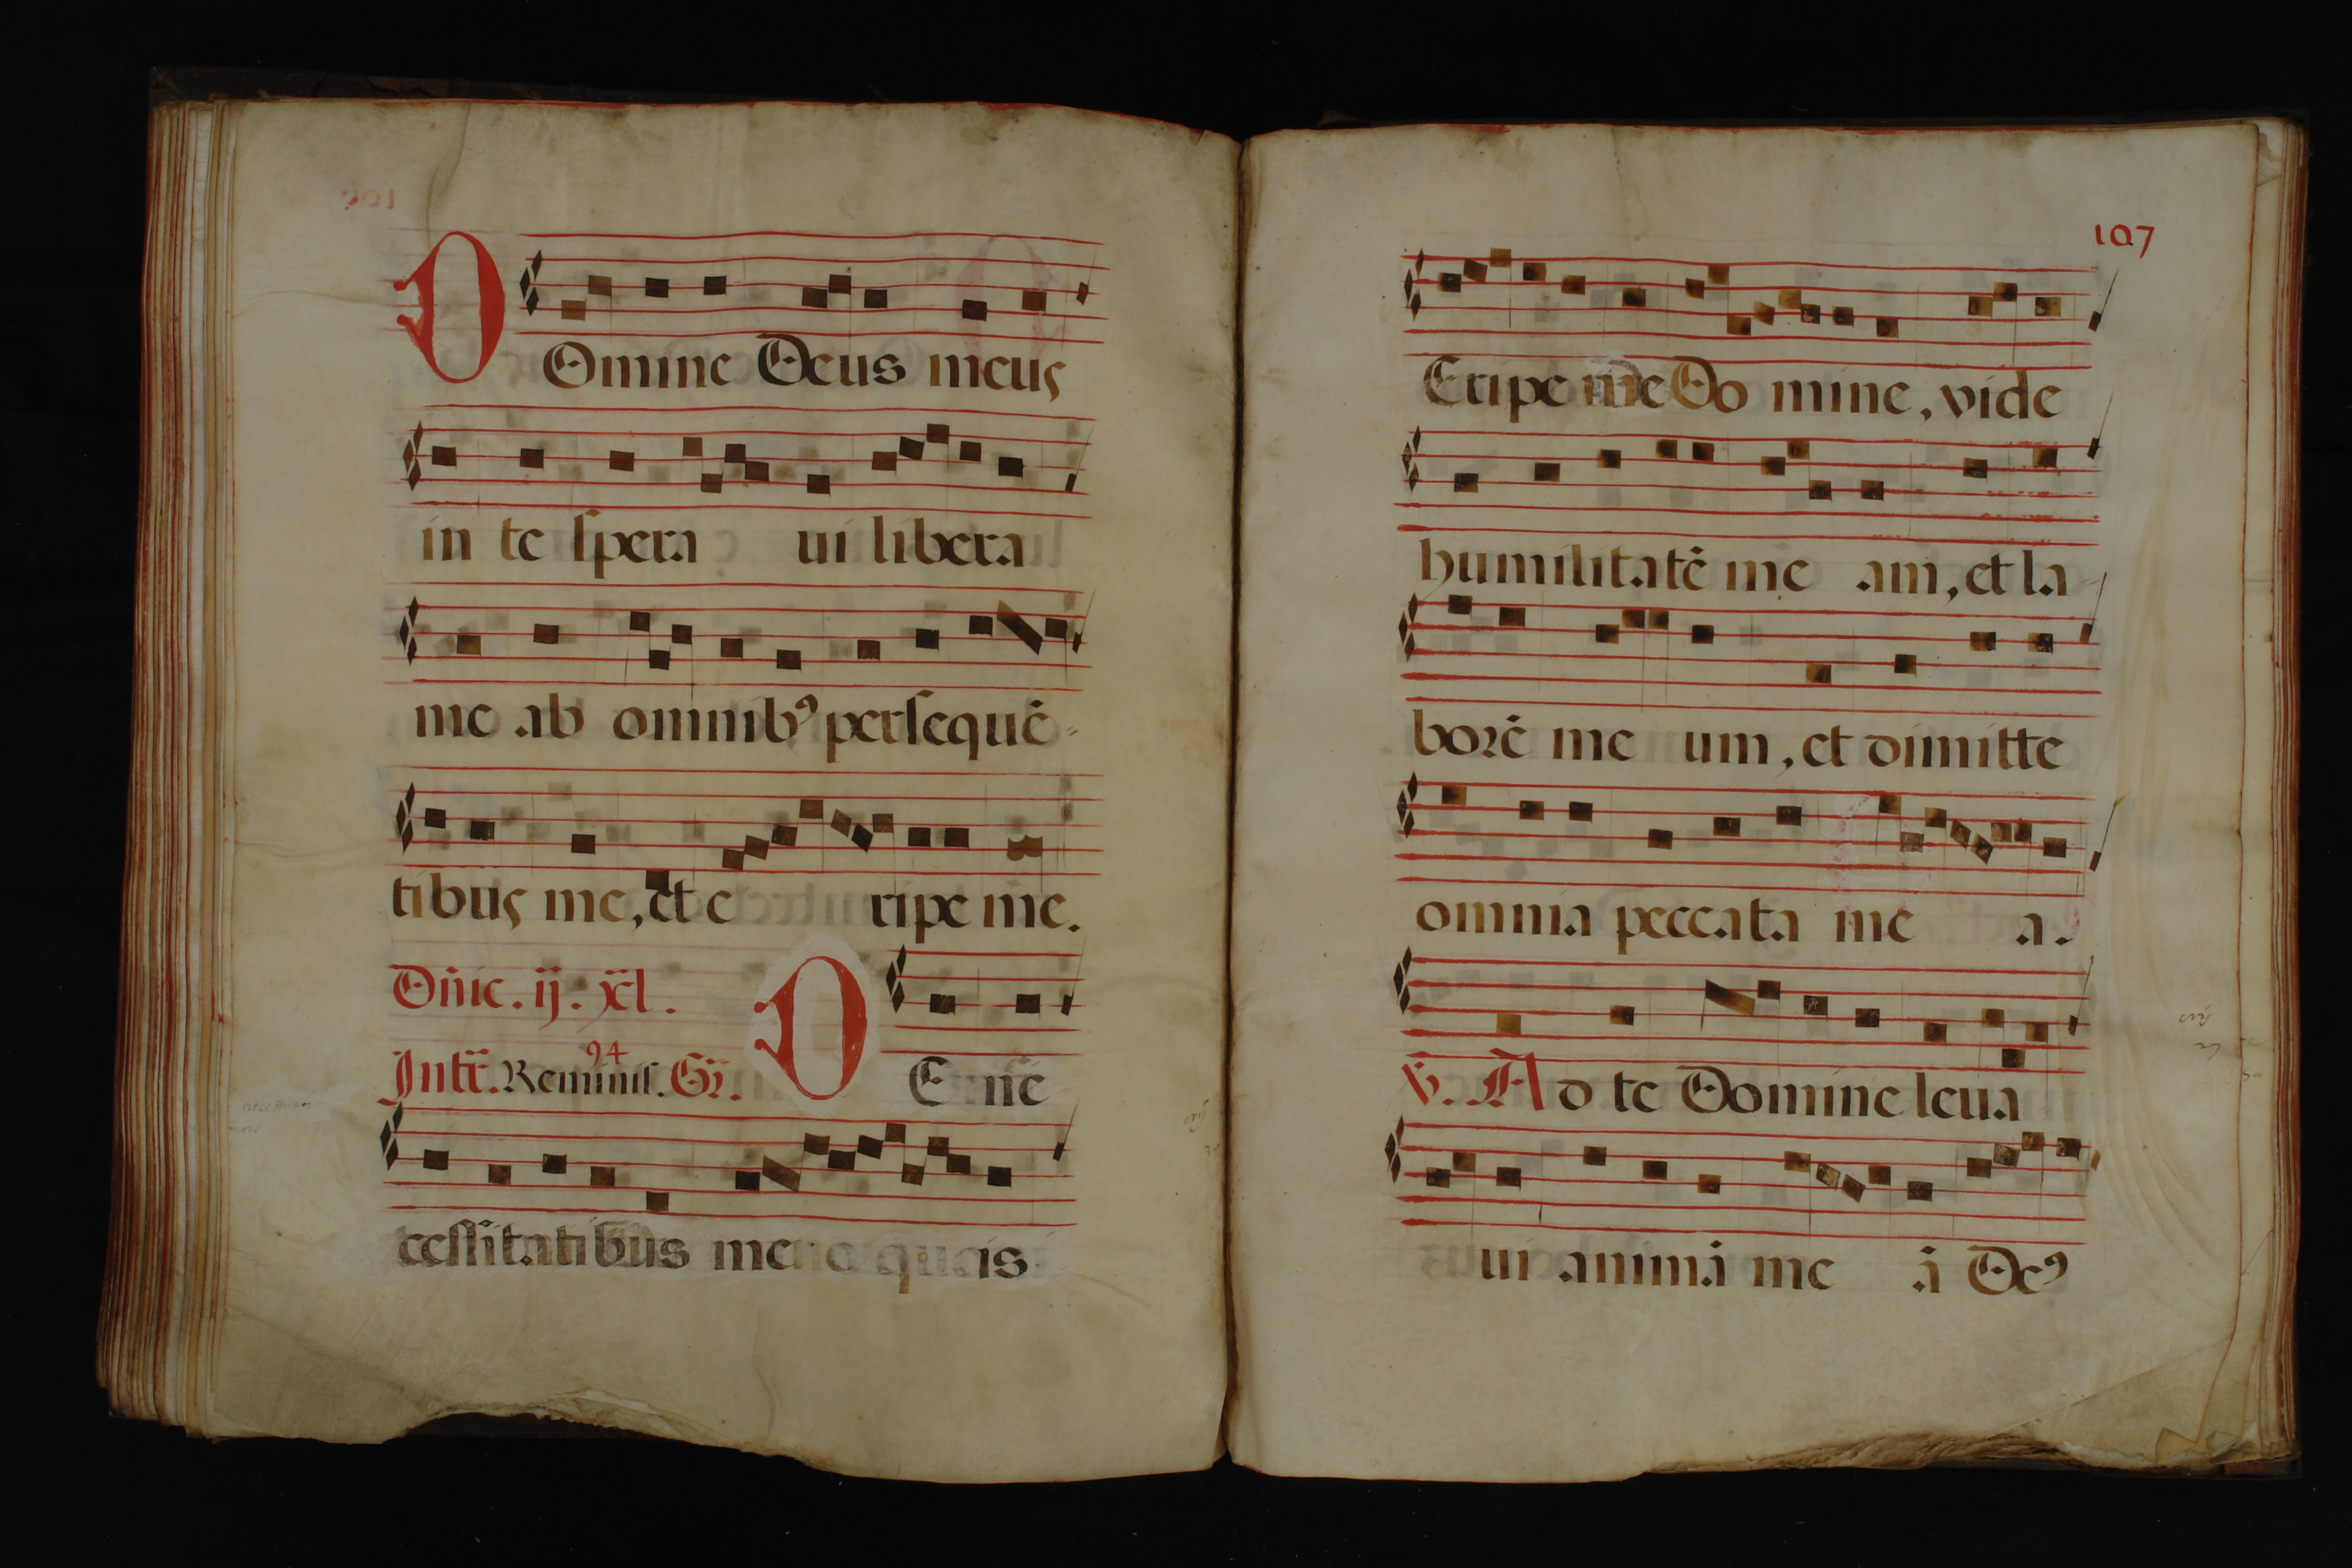 DOmine Deus meus
in te spera ui libera
me ab omnibꝰ persequē-
tibus me, et e ripe me.
Dñic. ij. xl. DE ne
94
Intr̃. Reminis. Gr̃.
cessitatibus me quis
107
Eripe me Do mine, vide
humilitatē me am, et la
borē me um, et dimitte
omnia peccata me a.
V. Ad te Domine leua
ui animā me ā Deꝰ